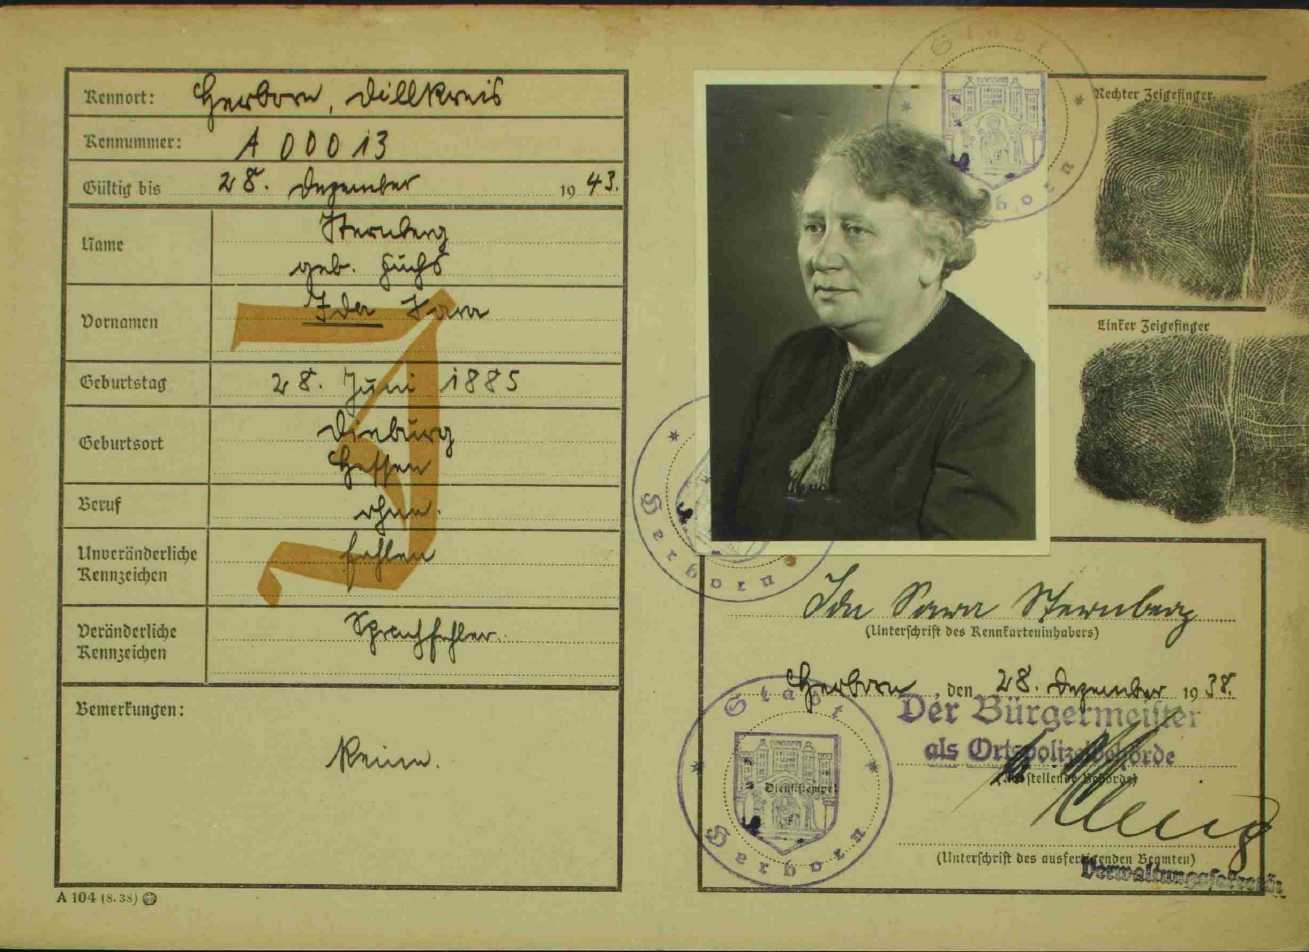 Kennort: Herborn, Dillkreis
Kennummer: A 00013
Gültig bis 28. Dezember 1943.
Name Sternberg
geb. Fuchs
Vornamen Ida Sara
Geburtstag 28. Juni 1885
Geburtsort Dieburg
Hessen
Beruf ohne.
Unveränderliche Kennzeichen fehlen
Veränderliche Kennzeichen Sprachfehler.
Bemerkungen:
Keine.
J
A 104 (8. 38)
Stadt Herborn
Rechter Zeigefinger
Linker Zeigefinger
Herborn
Ida Sara Sternberg
(Unterschrift des Kennkarteninhabers)
Herborn, den 28. Dezember 1938.
Der Bürgermeister
als Ortspolizeibehörde
(Ausstellende Behörde)
Stadt Herborn
Dienststempel
(Unterschrift des ausfertigenden Beamten)
Verwaltungssekretär